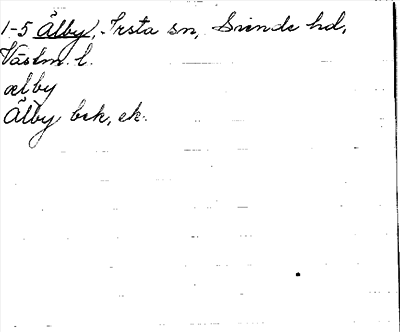 1-5 Älby, Irsta sn, Siende hd,
Västm. l.
ælby
Älby bsk, ek.